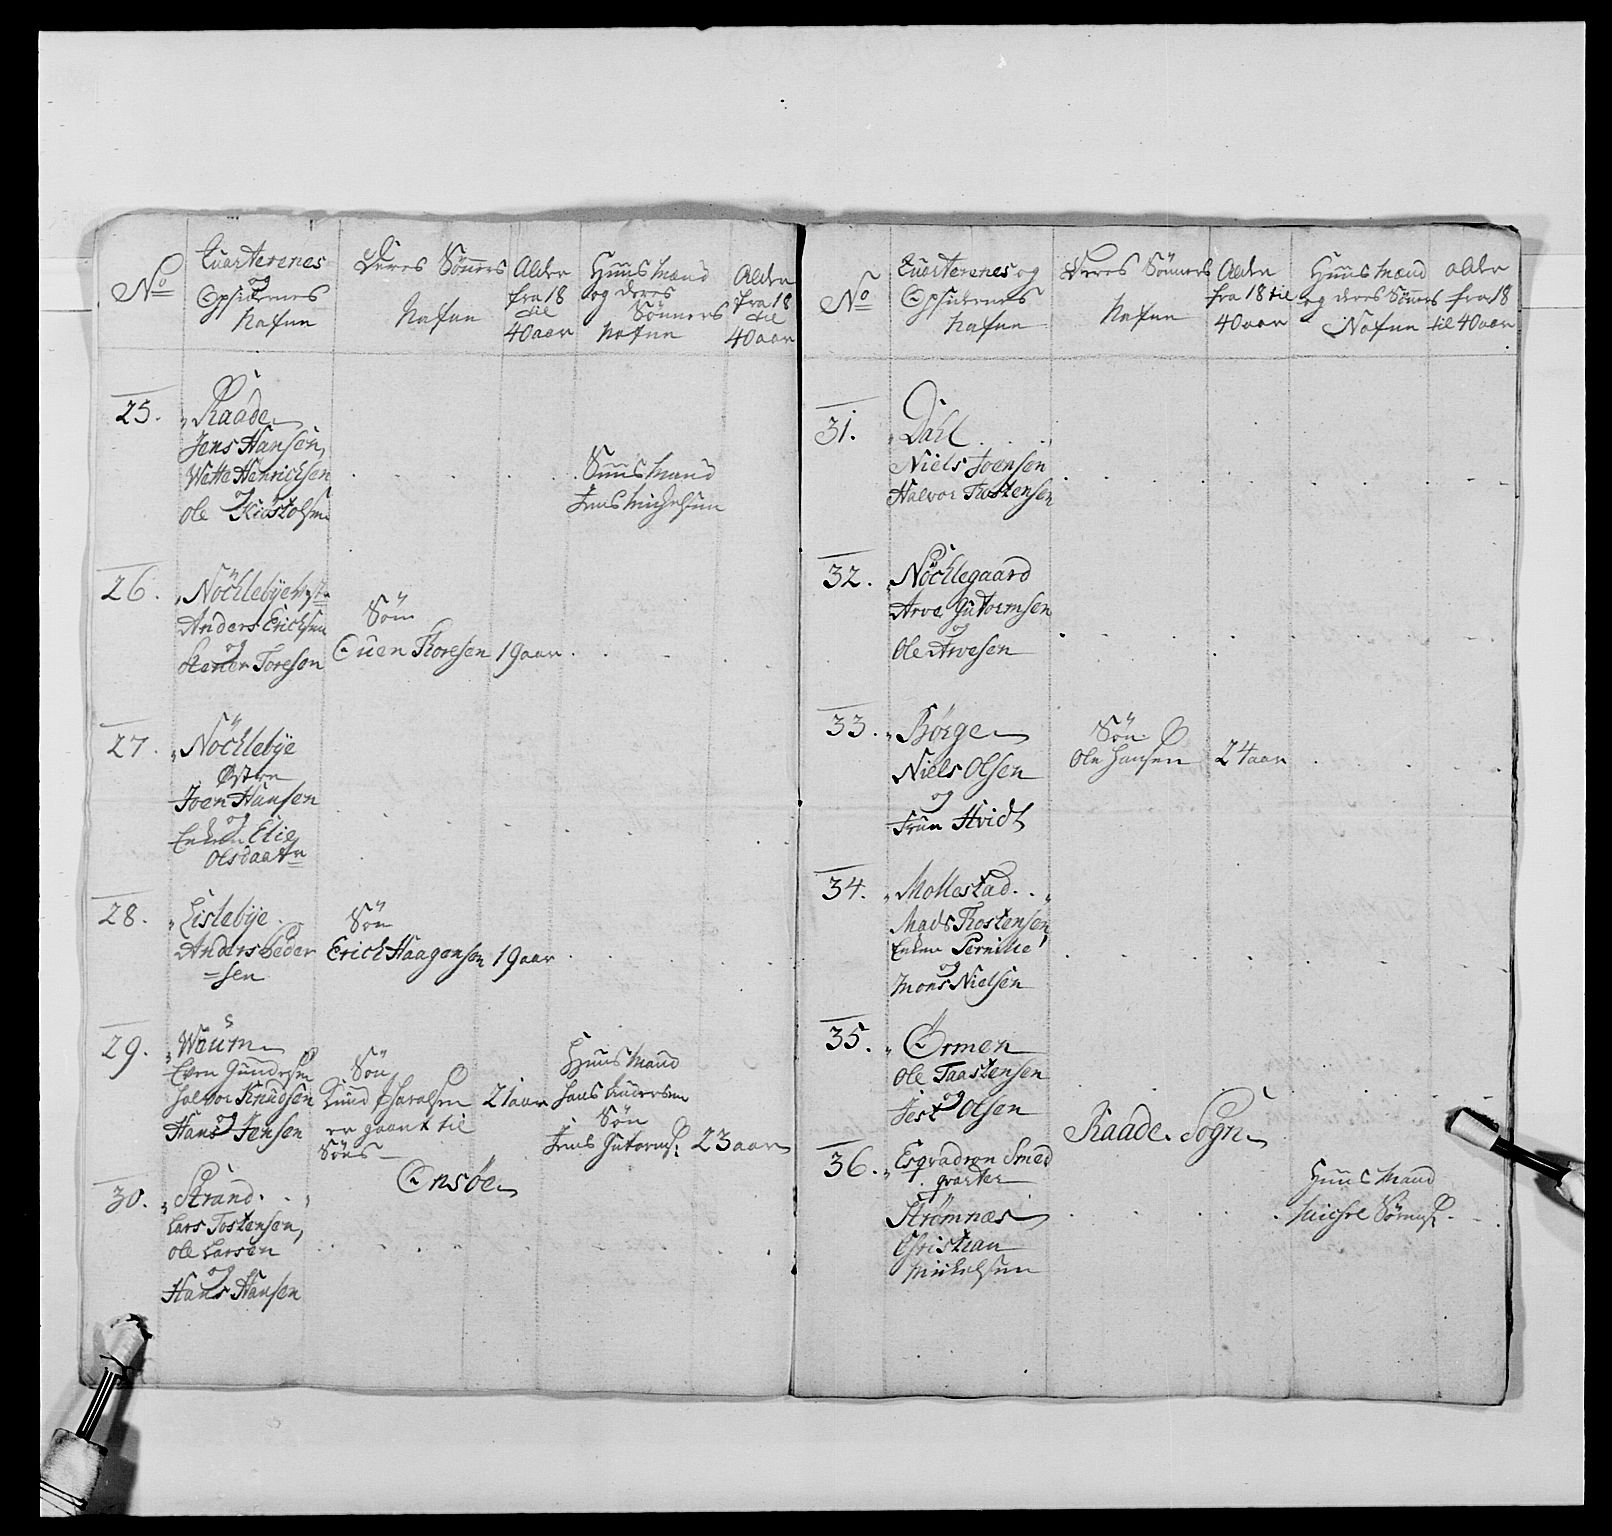 No
Quarterenes
og
Opsidernes
Nafne
Deres Sønners
Nafne
Alder
fra 18
til
40 aar
Huus Mænd
og deres
Sønners
Nafne
Alder
fra 18
til
40 aar
25.
Raade
Jens Hansen,
Wette Henrichsen
og
Ole Kiostolsen
Huusmand
Jens Michelsen
26.
Nöchlebÿe
Anders Erichsen
og
Stener Toresen
Sön
Even Thoresen
19 aar
27.
Nöchlebÿe
Østre
Joen Hansen
og
Enken Elie
Olsdaatr
28.
Listebÿe
Anders Peder
=sen
Sön
Erich Haagensen
19 aar
29.
Waum
Even Gundersen
Halvor Knudsen
og
Hans Jensen
Sön
Knud
er gaaet til
Söes
21 aar
Huus Mand
Hans Andersen
Sön
Jens Gutorms:
23 aar
Onsöe
30.
Strand
Lars Tostensen,
Ole Larsen
og
Hans Hansen
No
Quarterenes og
Opsidernes
Nafne
Deres Sönners
Nafne
Alder
fra 18 til
40 aar
Huus Mænd
og deres Sönners
Nafne
alder
fra 18
til 40 aar
31.
Dahl
Niels Joensen
Halvor Tostensen
32.
Nöchlegaard
Arve Gutormsen
og
Ole Arvesen
33.
Börge
Niels Olsen
og
Frue Hvidt
Sön
Ole Hansen
24 aar
34.
Mollestad
Mads Thostensen
Enken Pernille
og
Mons Nielsen
35.
Ørmen
Ole Taastensen
og
Jest Olsen
Raade Sogn
36.
Esqvadron Smed
qvarter
Strømnæs
Christian
Michelsen
Huus Mand
Michel Sörens: